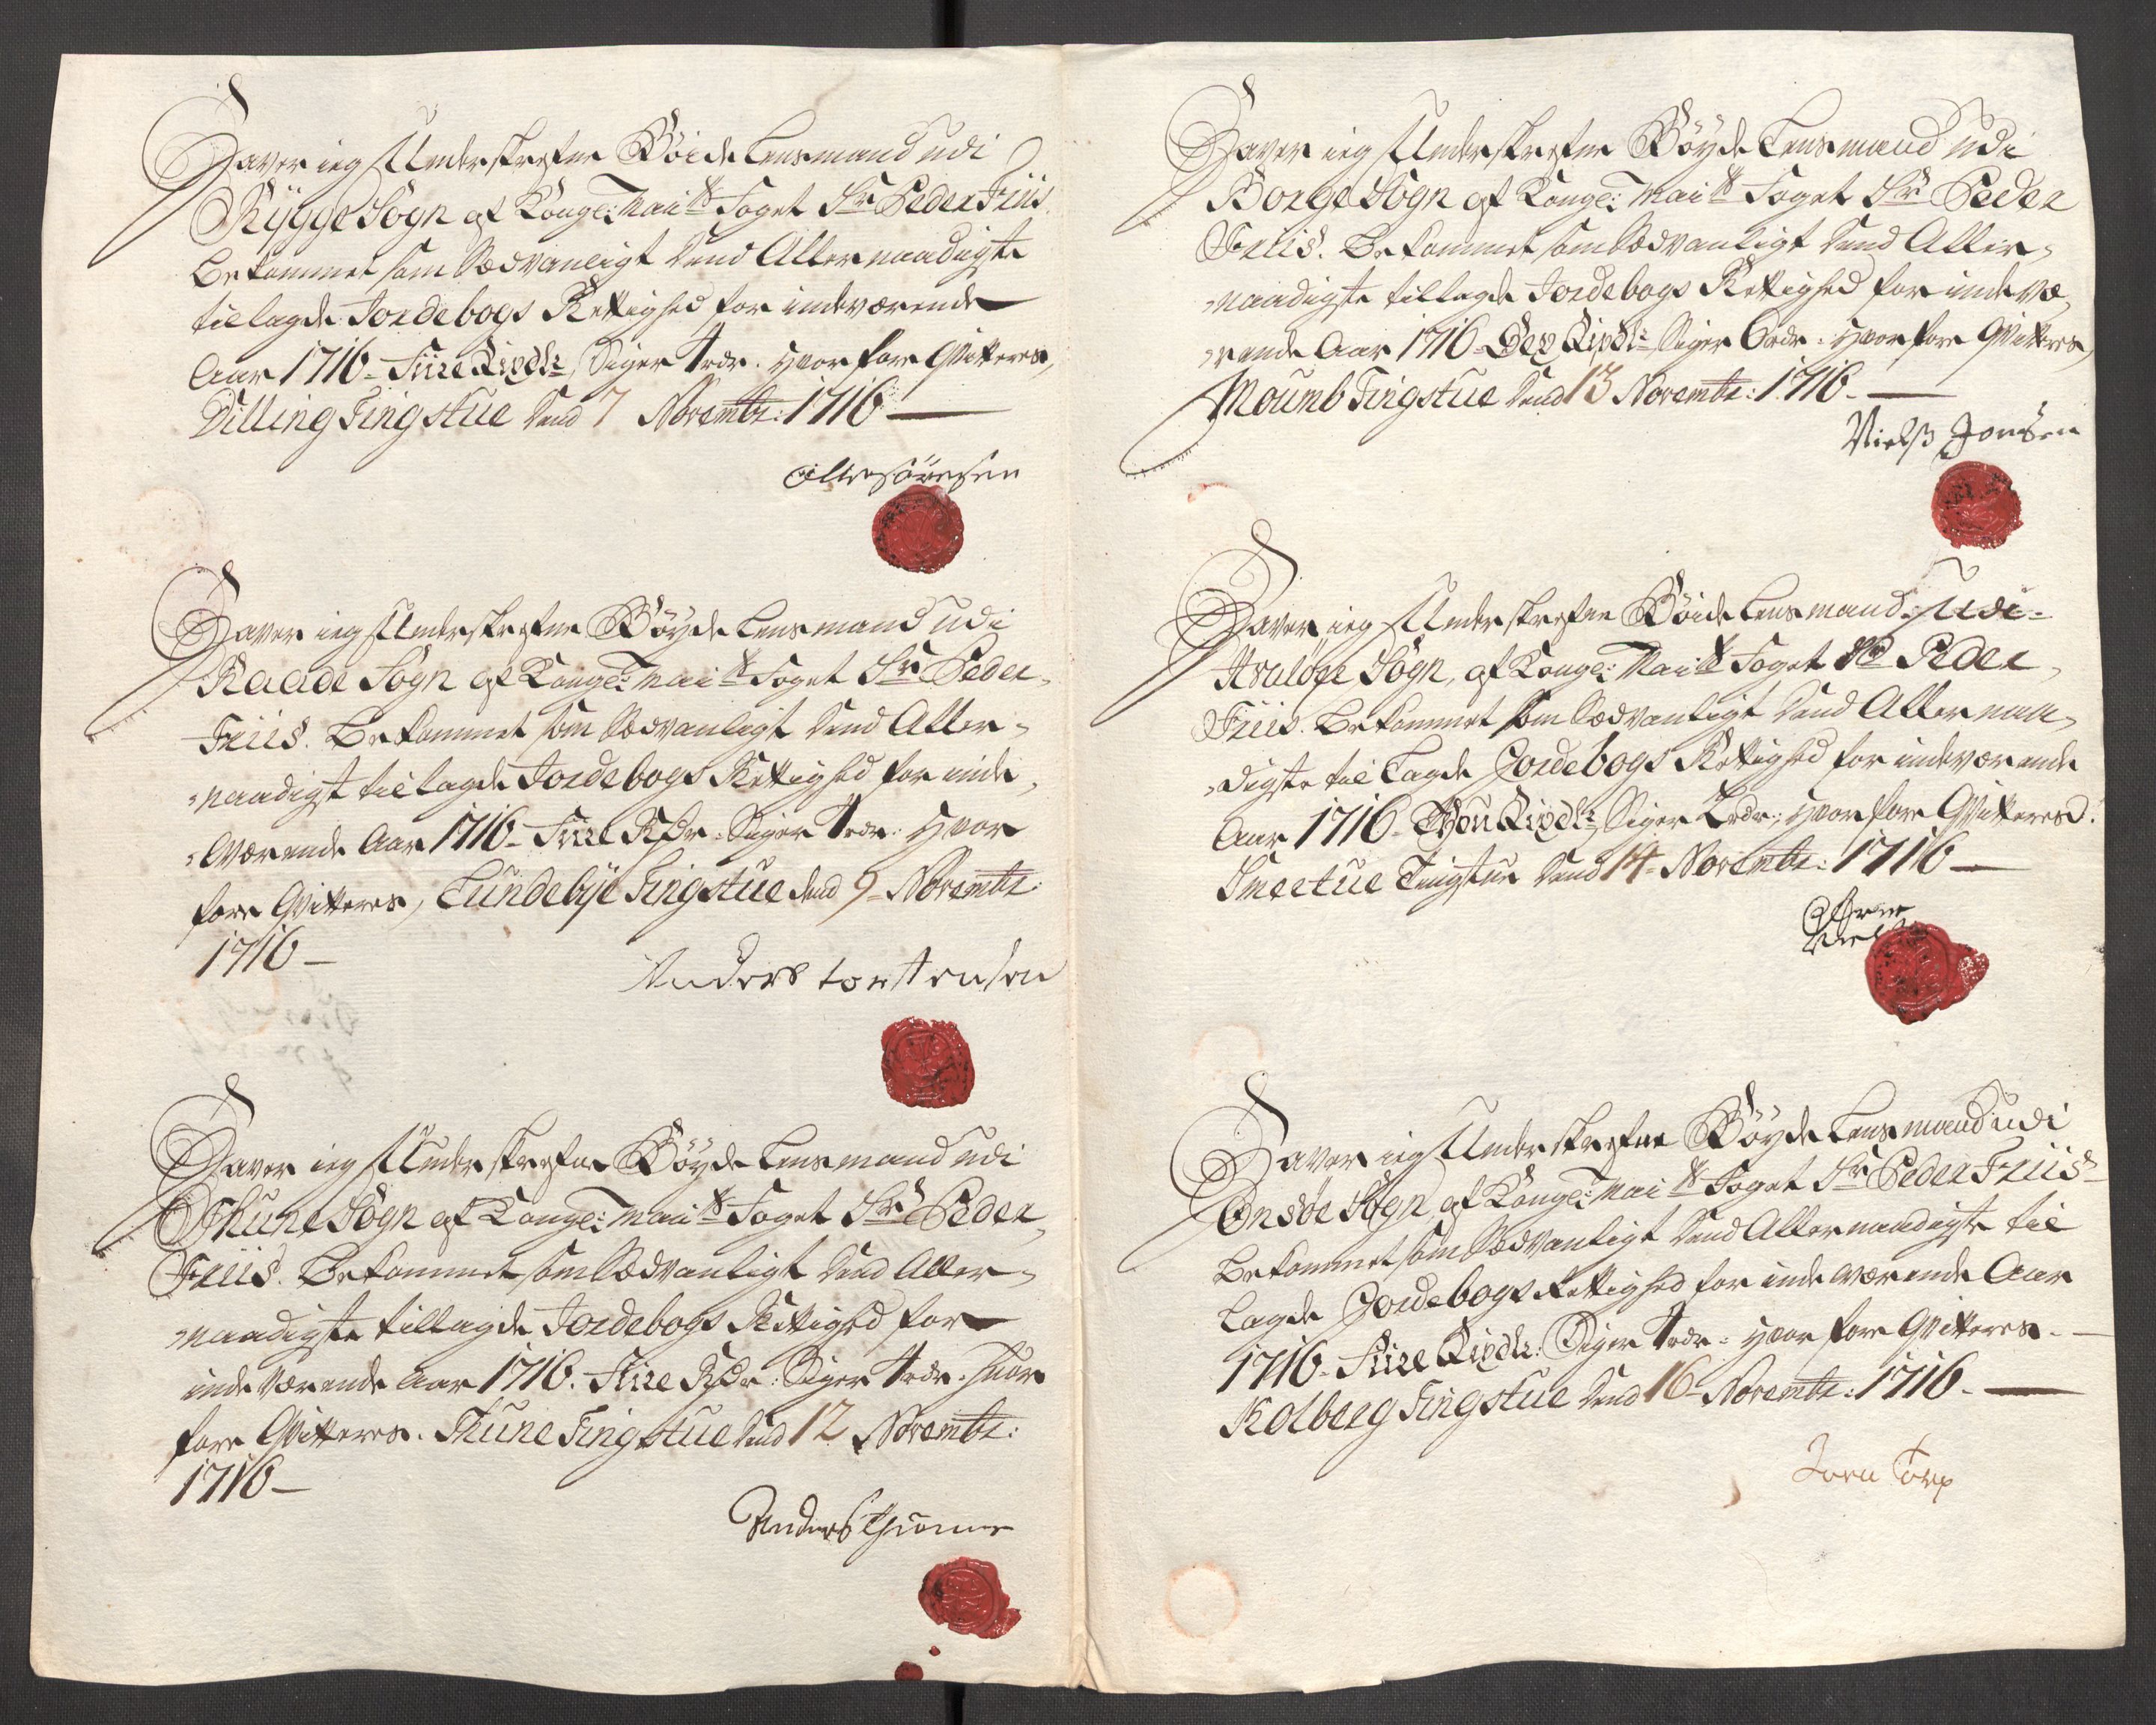 Haver ieg Underskrefne Böide Lensmand udi
Rygge Sogn af Kongl: Mai:ts Foget Sr. Peder Friis.
Bekommet som Sædvanligt dend Allernaadigste
tillagde Jordebogs Rettighed for indeværende
Aar 1716 - Fiire Rixdlr Siger 4 rdr. hvorfore Qvitteres,
Dilling Tingstue dend 7 Novembr: 1716 —
Olle Sörensen
Haver ieg Underskrefne Böyde Lensmand udi
Raade Sogn af Kongl: Mai:ts Foget Sr. Peder
Friis. Bekommet som Sædvanligt dend Aller-
naadigst tillagde Jordebogs Rettighed for inde-
Værende Aar 1716 - Fiire Rdr. Siger 4 rdr. hvor
fore Qvitteres, Lundebye Tingstue dend 9 - Novembr:
1716 -
Anders torstensen
Haver ieg Underskrefne Böyde Lensmand udi
Thune Sogn af Kongl: Mai:ts Foget Sr. Peder
Friis. Bekommet som Sædvanligt dend Aller-
naadigste tillagde Jordebogs Rettighed for
indeværende Aar 1716. Fiire Rdr. Siger 4 rdr. hvor
fore Qvitteres. Thune Tingstue dend 12 Novembr:
1716 -
Anders Thuunne
Haver ieg Underskrefne Böyde Lensmand udi
Borge Sogn af Kongl: Mai:ts Foget Sr. Peder
Friis. Bekommet som Sædvanligt dend Aller-
naadigste tillagde Jordebogs Rettighed for indevæ-
rende Aar 1716 - Sex Rixdlr Siger 6 rdr. hvorfore Qvitteres,
Moumb Tingstue dend 13 Novembr: 1716 -
Nielß Jonsen
Haver ieg Underskrefne Böide Lensmand Udi -
Hvaløge Sogn, af Kongl: Mai:ts Foget Sr. Peder
Friis. Bekommet som Sædvanligt dend Allernaa-
digste til Lagde Jordebogs Rettighed for indeværende
Aar 1716 - Thou Rixdlr Siger 2 rdr: hvorfore Qvitteres.
Smertue Tingstue dend 14 - Novembr: 1716 —
Haver ieg Underskrefne Böyde Lensmand udi
Onsöe Sogn af Kongl: Mai:ts Foget Sr. Peder Friis -
Bekommet som Sædvanligt dend Allernaadigste til
Lagde Jordebogs Rettighed for indeværende Aar
1716 - Fiire Rixdlr: Siger 4 rdr - hvorfore Qvitteres. —
Kolberg Tingstue dend 16 - Novembr: 1716 —
Torp